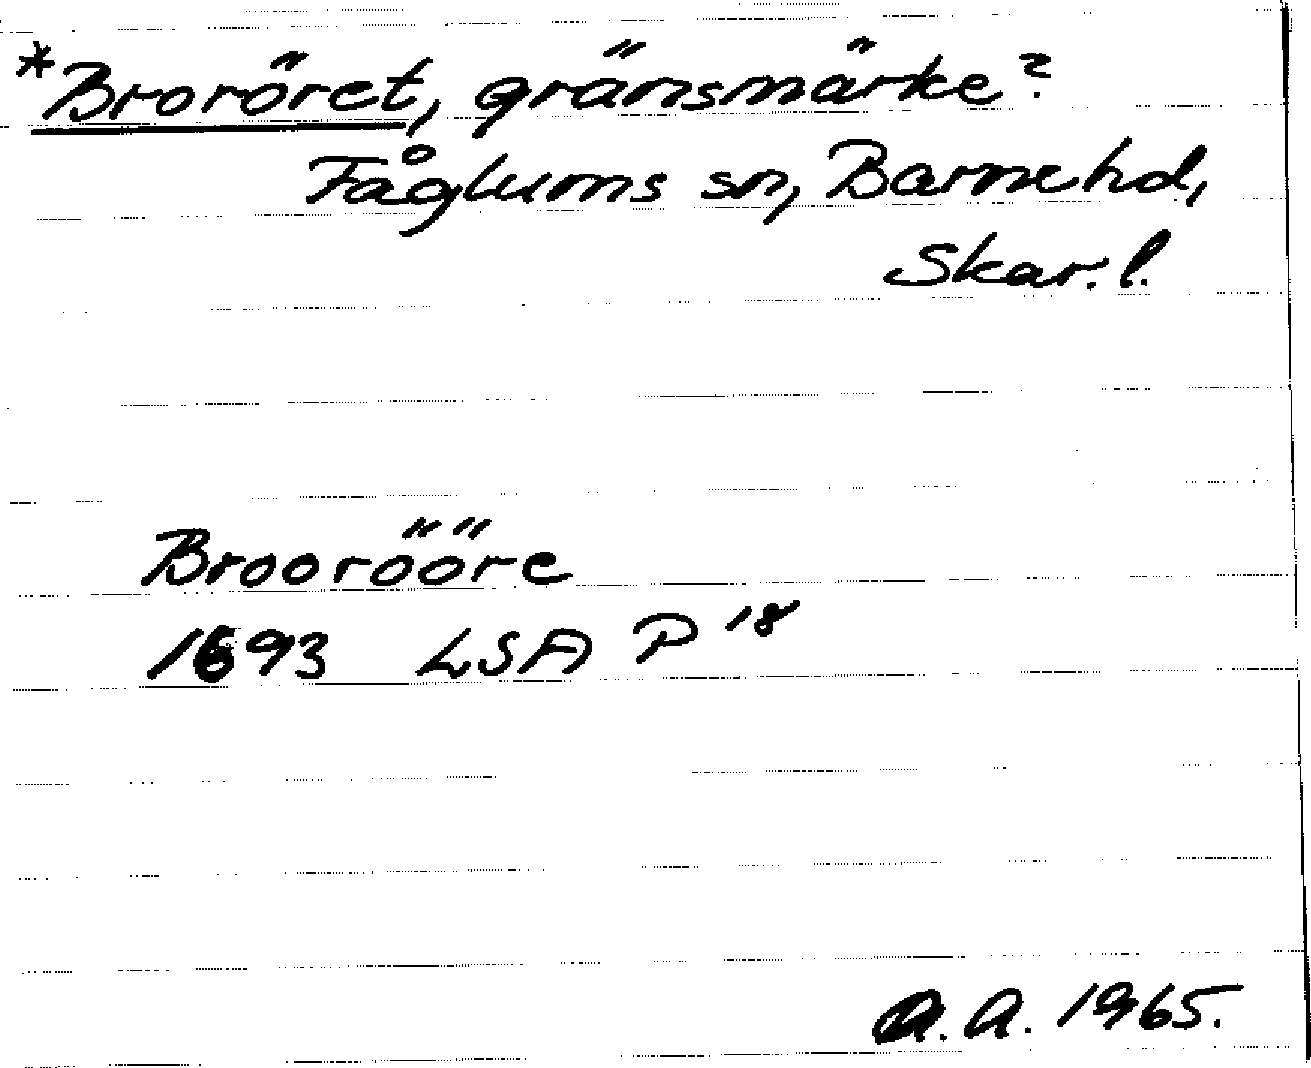 *Broröret, gränsmärke?
Fåglums sn, Barnehd,
Skar. l.
Broorööre
1693 LSA P 18
A. A. 1965.